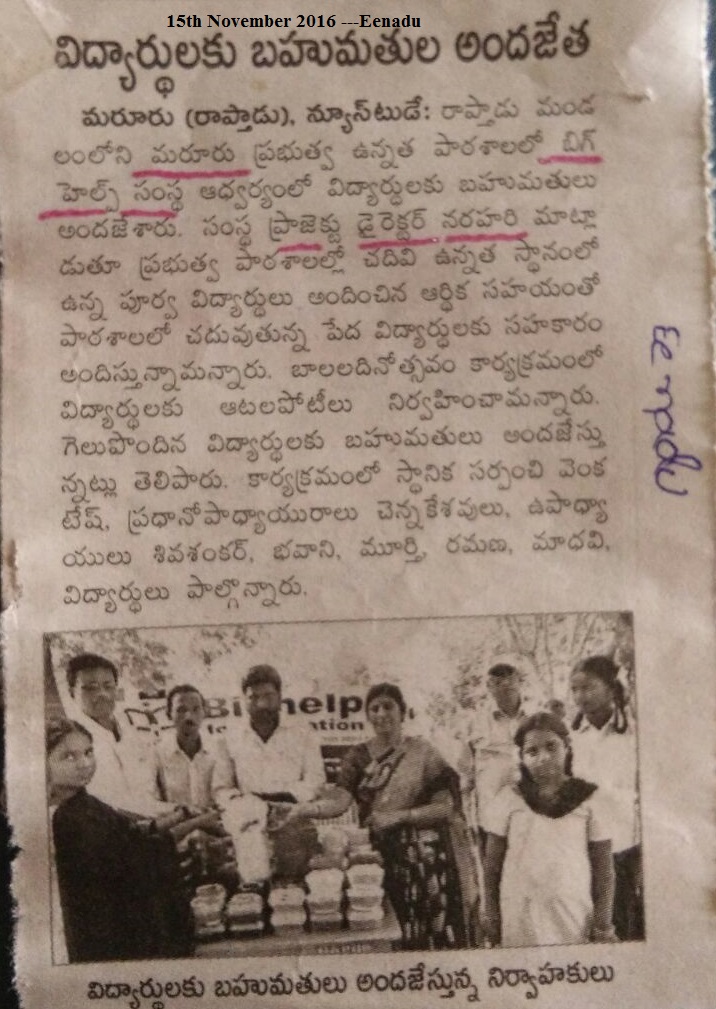 15th November 2016 ---Eenadu
విద్యార్థులకు బహుమతుల అందజేత
మరూరు (రాప్తాడు), న్యూస్‌టుడే: రాప్తాడు మండ
లంలోని మరూరు ప్రభుత్వ ఉన్నత పాఠశాలలో బిగ్
హెల్ప్ సంస్థ ఆధ్వర్యంలో విద్యార్థులకు బహుమతులు
అందజేశారు. సంస్థ ప్రాజెక్టు డైరెక్టర్ నరహరి మాట్లా
డుతూ ప్రభుత్వ పాఠశాలల్లో చదివి ఉన్నత స్థానంలో
ఉన్న పూర్వ విద్యార్థులు అందించిన ఆర్థిక సహయంతో
పాఠశాలలో చదువుతున్న పేద విద్యార్థులకు సహకారం
అందిస్తున్నామన్నారు. బాలలదినోత్సవం కార్యక్రమంలో
విద్యార్థులకు ఆటలపోటీలు నిర్వహించామన్నారు.
గెలుపొందిన విద్యార్థులకు బహుమతులు అందజేస్తు
న్నట్లు తెలిపారు. కార్యక్రమంలో స్థానిక సర్పంచి వెంక
టేష్, ప్రధానోపాధ్యాయురాలు చెన్నకేశవులు, ఉపాధ్యా
యులు శివశంకర్, భవాని, మూర్తి, రమణ, మాధవి,
విద్యార్థులు పాల్గొన్నారు.
Eenadu
help
విద్యార్థులకు బహుమతులు అందజేస్తున్న నిర్వాహకులు